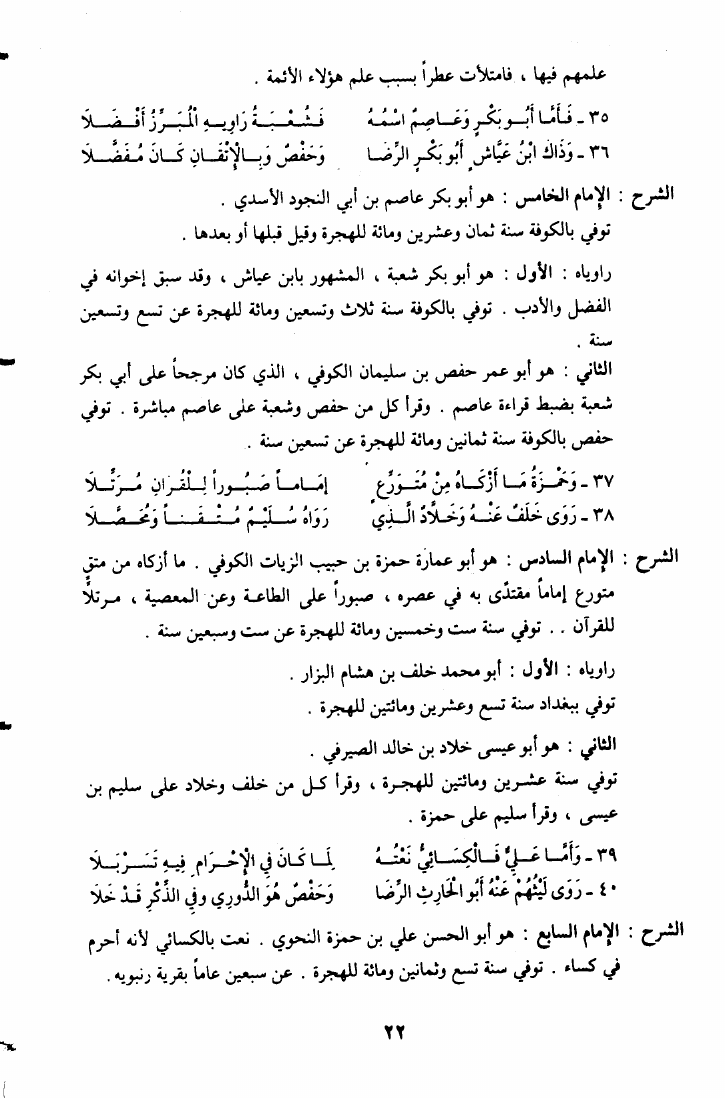 علمهم فيها ، فامتلأت عطراً بسبب علم هؤلاء الأئمة .
٣٥ - فَأَمَّا أَبُو بَكْرٍ وَعَاصِمٌ اسْمُهُ فَشُعْبَةُ رَاوِيهِ الْمُبَرِّزُ أَفْضَلَا
٣٦ - وَذَاكَ ابْنُ عَيَّاشٍ أَبُو بَكْرٍ الرِّضَا وَحَفْصٌ وَبِالْإِتْقَانِ كَانَ مُفَضَّلَا
الشرح : الإمام الخامس : هو أبو بكر عاصم بن أبي النجود الأسدي .
توفي بالكوفة سنة ثمان وعشرين ومائة للهجرة وقيل قبلها أو بعدها .
راوياه : الأول : هو أبو بكر شعبة ، المشهور بابن عياش ، وقد سبق إخوانه في
الفضل والأدب . توفي بالكوفة سنة ثلاث وتسعين ومائة للهجرة عن تسع وتسعين
سنة .
الثاني : هو أبو عمر حفص بن سليمان الكوفي ، الذي كان مرجحاً على أبي بكر
شعبة بضبط قراءة عاصم . وقرأ كل من حفص وشعبة على عاصم مباشرة . توفي
حفص بالكوفة سنة ثمانين ومائة للهجرة عن تسعين سنة .
٣٧ - وَحَمْزَةُ مَا أَزْكَاهُ مِنْ مُتَوَرِّعٍ إِمَاماً صَبُوراً لِلْقُرَانِ مُرَتِّلَا
٣٨ - رَوَى خَلَفٌ عَنْهُ وَخَلَّادٌ الَّذِي رَوَاهُ سُلَيْمٌ مُتْقَناً وَمُحَصَّلَا
الشرح : الإمام السادس : هو أبو عمارة حمزة بن حبيب الزيات الكوفي . ما أزكاه من متقٍ
متورع إماماً مقتدًى به في عصره ، صبوراً على الطاعة وعن المعصية ، مرتلًا
للقرآن . . توفي سنة ست وخمسين ومائة للهجرة عن ست وسبعين سنة .
راوياه : الأول : أبو محمد خلف بن هشام البزار .
توفي ببغداد سنة تسع وعشرين ومائتين للهجرة .
الثاني : هو أبو عيسى خلاد بن خالد الصيرفي .
توفي سنة عشرين ومائتين للهجرة ، وقرأ كل من خلف وخلاد على سليم بن
عيسى ، وقرأ سليم على حمزة .
٣٩ - وَأَمَّا عَلِيٌّ فَالْكِسَائِيُّ نَعْتُهُ لِمَا كَانَ فِي الْإِحْرَامِ فِيهِ تَسَرْبَلَا
٤٠ - رَوَى لَيْثُهُمْ عَنْهُ أَبُو الْحَارِثِ الرِّضَا وَحَفْصٌ هُوَ الدُّورِي وَفِي الذِّكْرِ قَدْ خَلَا
الشرح : الإمام السابع : هو أبو الحسن علي بن حمزة النحوي . نعت بالكسائي لأنه أحرم
في كساء . توفي سنة تسع وثمانين ومائة للهجرة . عن سبعين عاماً بقرية رنبويه .
٢٢